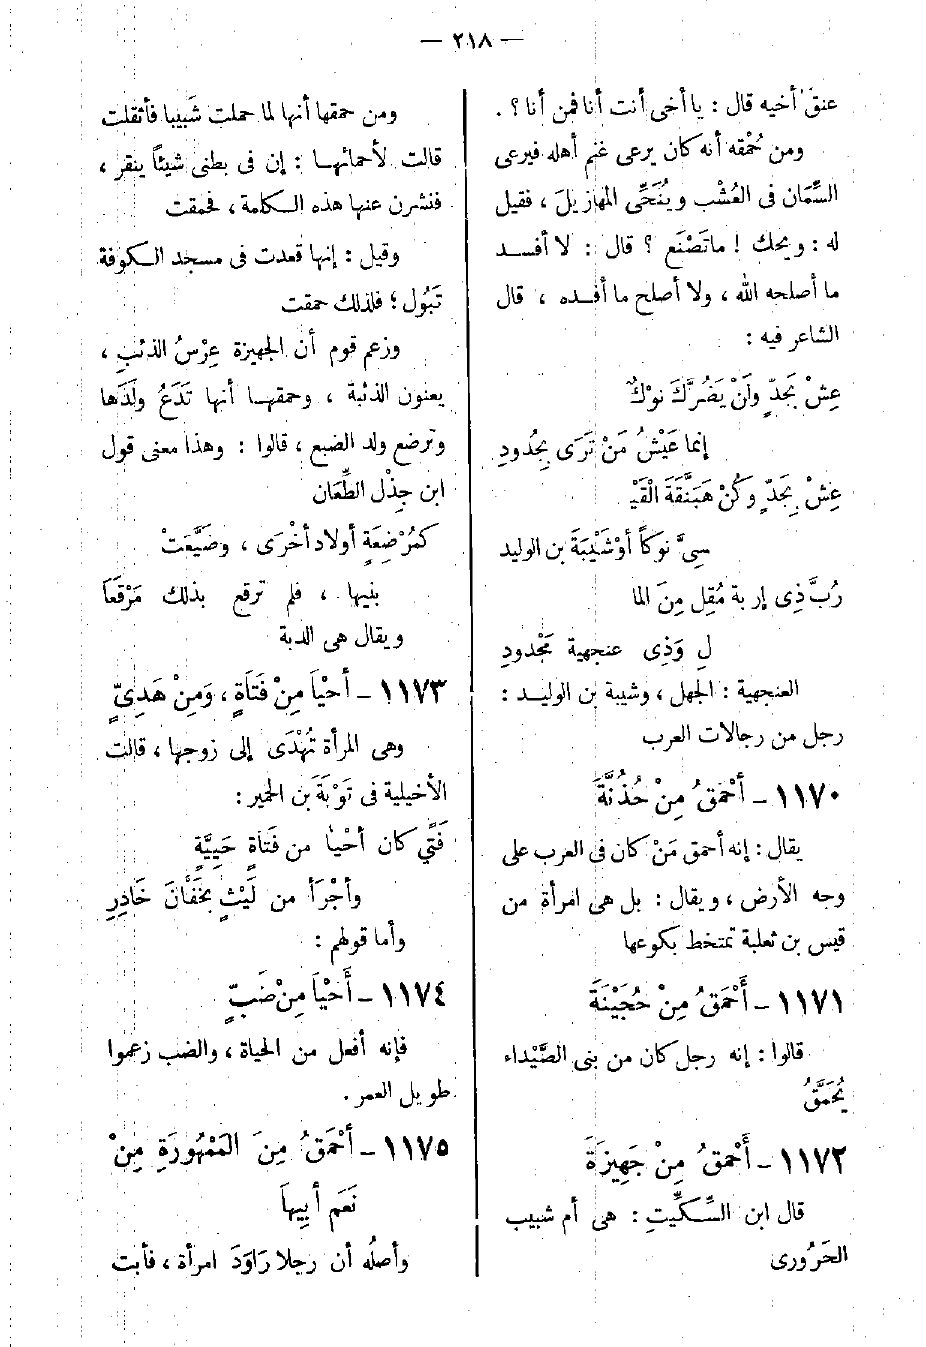 — ٢١٨ —
عنقَ أخيه قال : يا أخى أنت أنا فمن أنا ؟ .
ومن حُمْقه أنه كان يرعى غنم أهله فيرعى
السِّمَان فى العُشْب ويُنَحِّى المهازيلَ ، فقيل
له : ويحك ! ماتَصْنَع ؟ قال : لا أفسد
ما أصلحه الله ، ولا أصلح ما أفسده ، قال
الشاعر فيه :
عِشْ بَجَدّ وَلَنْ يَضُرَّكَ نوْكٌ
إنما عَيْشُ مَنْ تَرَى بِجُدُودِ
عِشْ بِجَدّ وكُنْ هَبَنَّقَةَ الْقَيْ
سِىَّ نوكاً أوْ شَيْبَةَ بن الوليد
رُبَّ ذِى إربة مُقِل مِنَ الما
لِ وَذِى عنجهية مَجْدُودِ
العنجهية : الجهل ، وشيبة بن الوليد :
رجل من رجالات العرب
١١٧٠ - أَحْمَقُ مِنْ حُذُنَّةَ
يقال : إنه أحمق مَنْ كان فى العرب على
وجه الأرض ، ويقال : بل هى امرأة من
قيس بن ثعلبة تمتخط بكوعها
١١٧١ - أَحْمَقُ مِنْ حُجَيْنَةَ
قالوا : إنه رجل كان من بنى الصَّيْداء
يُحَمَّقُ
١١٧٢ - أَحْمَقُ مِنْ جَهِيزَةَ
قال ابن السِّكِّيتِ : هى أم شبيب
الحَرُورى
ومن حمقها أنها لما حملت شَبيبا فأثقلت
قالت لأحمائها : إن فى بطنى شيئاً ينقر ،
فنشرن عنها هذه الكلمة ، فحمقت
وقيل : إنها قعدت فى مسجد الكوفة
تَبُول ؛ فلذلك حمقت
وزعم قوم أن الجهيزة عِرْسُ الذئبِ ،
يعنون الذئبة ، وحمقها أنها تَدَعُ ولَدَها
وترضع ولد الضبع ، قالوا : وهذا معنى قول
ابن جِذْل الطِّعَان
كمُرْضِعَةٍ أولاد أخْرَى ، وضَيَّعَتْ
بنيها ، فلم ترقع بذلك مَرْقَعَا
ويقال هى الدبة
١١٧٣ - أَحْيَا مِنْ فَتَاةٍ ، وَمِنْ هَدِىّ
وهى المرأة تُهْدَى إلى زوجها ، قالت
الأخيلية فى تَوْبَةَ بن الحمير :
فَتًى كان أحْيَا من فَتَاةٍ حَيِيَّةٍ
وأجْرَأ من لَيْثٍ بخَفَّانَ خَادِرِ
وأما قولهم :
١١٧٤ - أَحْيَا مِنْ ضَبٍّ
فإنه أفعل من الحياة ، والضب زعموا
طويل العمر .
١١٧٥ - أَحْمَقُ مِنَ المَمْهُورَةِ مِنْ
نَعَم أَبِيهاَ
وأصلُه أن رجلا رَاوَدَ امرأة ، فأبت